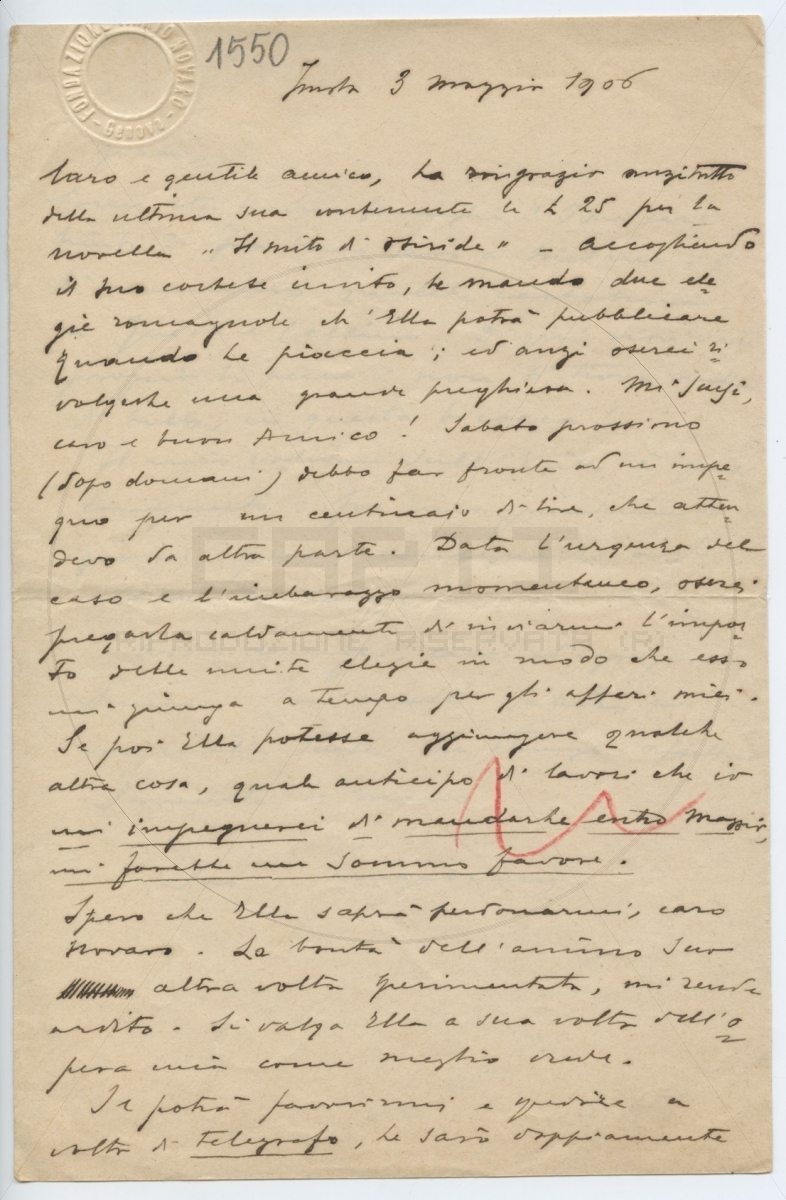 FONDAZIONE MARIO NOVARO - Genova -
1550
Imola 3 maggio 1906
Caro e gentile amico, La ringrazio anzitutto
della ultima sua contenente le £ 25 per la
novella „ Il mito di Osiride " - Accogliendo
il suo cortese invito, le mando due ele=
gie romagnole ch'Ella potrà pubblicare
quando Le piaccia; ed anzi oserei ri=
volgerle una grande preghiera. Mi scusi,
caro e buon Amico! Sabato prossimo
(dopo domani) debbo far fronte ad un impe=
gno per un centinaio di lire, che atten=
devo da altra parte. Data l'urgenza del
caso e l'imbarazzo momentaneo, oserei
pregarla caldamente di inviarmi l'impor=
to delle unite elegie in modo che esso
mi giunga a tempo per gli affari miei.
Se poi Ella potesse aggiungere qualche
altra cosa, quale anticipo di lavori che io
mi impegnerei di mandarle entro Maggio,
mi farebbe un sommo favore.
Spero che Ella saprà perdonarmi, caro
Novaro. La bontà dell'animo Suo
altra volta sperimentata, mi rende
ardito. Si valga Ella a sua volta dell'o=
pera mia come meglio crede.
Se potrà favorirmi e spedire a
volta di telegrafo, Le sarò doppiamente
RIPRODUZIONE RISERVATA (R)